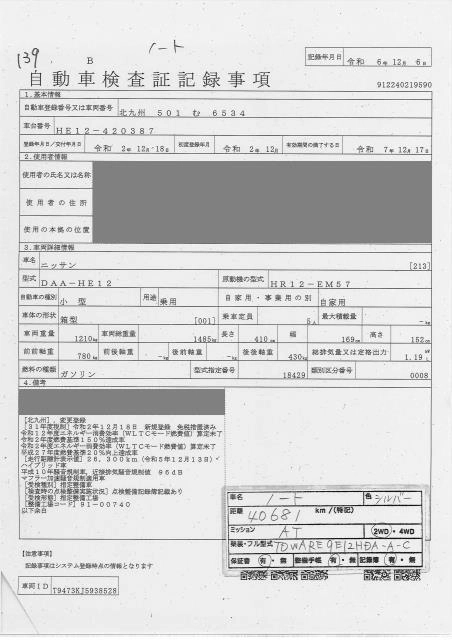 139
B
ノート
記録年月日 令和 6年 12月 6日
自動車検査証記録事項
912240219590
1.基本情報
自動車登録番号又は車両番号 北九州 501 む 6534
車台番号 HE12-420387
登録年月日/交付年月日 令和 2年 12月 18日 初度登録年月 令和 2年 12月 有効期間の満了する日 令和 7年 12月 17日
2.使用者情報
使用者の氏名又は名称
使用者の住所
使用の本拠の位置
3.車両詳細情報
車名 ニッサン [213]
型式 DAA-HE12 原動機の型式 HR12-EM57
自動車の種別 小型 用途 乗用 自家用・事業用の別 自家用
車体の形状 箱型 [001] 乗車定員 5人 最大積載量 -kg
車両重量 1210kg 車両総重量 1485kg 長さ 410cm 幅 169cm 高さ 152cm
前前軸重 780kg 前後軸重 -kg 後前軸重 -kg 後後軸重 430kg 総排気量又は定格出力 1.19
燃料の種類 ガソリン 型式指定番号 18429 類別区分番号 0008
4.備考
[北九州],変更登録
[31年度税制]令和2年12月18日 新規登録 免税措置済み
令和12年度エネルギー消費効率(WLTCモード燃費値)算定未了
令和2年度燃費基準150%達成車
令和2年度エネルギー消費効率(WLTCモード燃費値)算定未了
平成27年度燃費基準20%向上達成車
[走行距離計表示値]26,300km(令和5年12月13日)
ハイブリッド車
平成10年騒音規制車,近接排気騒音規制値 96dB
マフラー加速騒音規制適用車
[受検種別]指定整備車
[検査時の点検整備実施状況]点検整備記録簿記載あり
[受検形態]指定整備工場
[整備工場コード]91-00740
以下余白
車名 ノート 色 シルバー
距離 40681 km/(特記)
ミッション AT 2WD・4WD
架装・フル型式
保証書 有・無 整備手帳 有・無 記録簿 有・無
【注意事項】
記録事項はシステム登録時点の情報となります
車両ID T9473KJ5938528